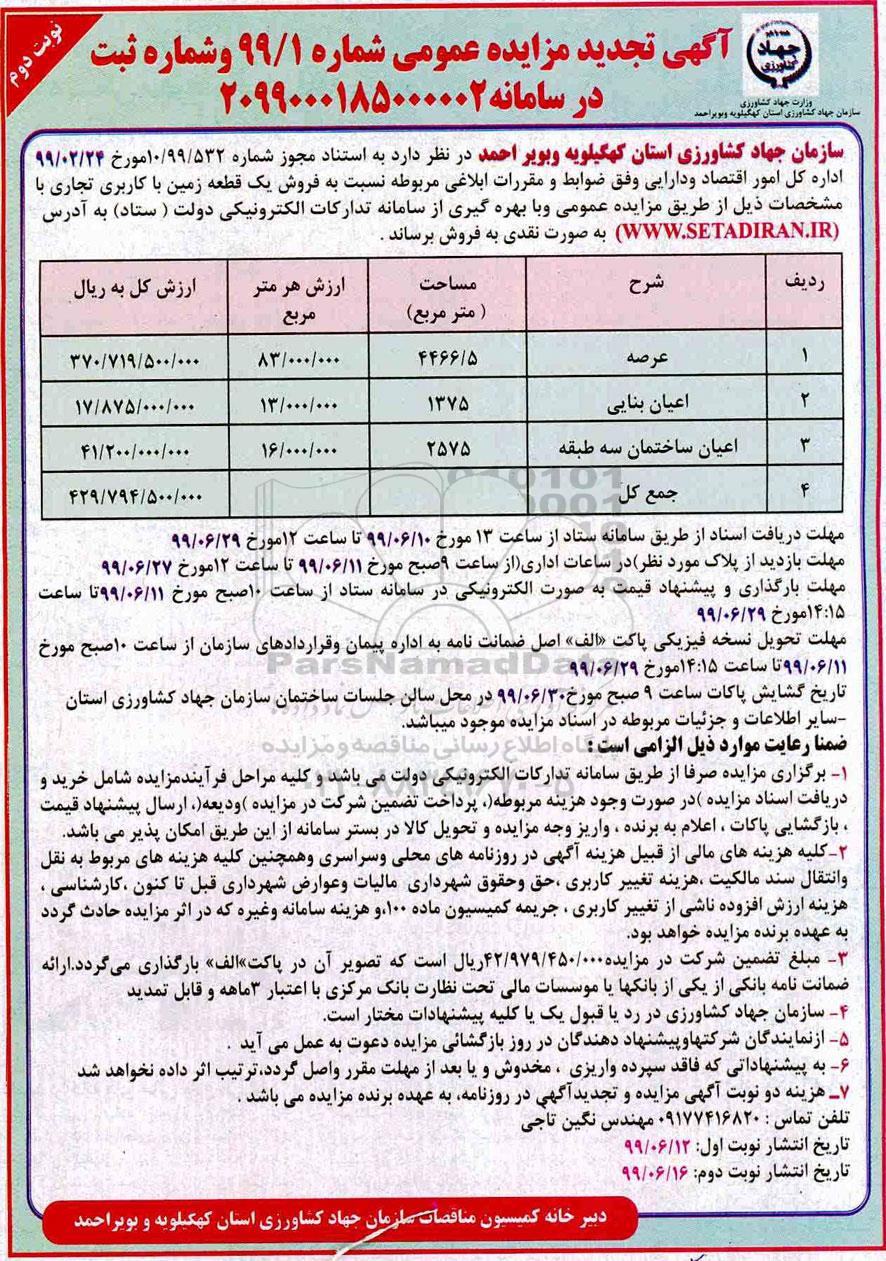 نوبت دوم
جهاد
کشاورزی
وزارت جهاد کشاورزی
سازمان جهاد کشاورزی استان کهگیلویه وبویراحمد
آگهی تجدید مزایده عمومی شماره ۹۹/۱ وشماره ثبت
در سامانه۲۰۹۹۰۰۰۱۸۵۰۰۰۰۰۲
سازمان جهاد کشاورزی استان کهگیلویه وبویر احمد در نظر دارد به استناد مجوز شماره ۱۰/۹۹/۵۳۲مورخ ۹۹/۰۲/۲۴
اداره کل امور اقتصاد ودارایی وفق ضوابط و مقررات ابلاغی مربوطه نسبت به فروش یک قطعه زمین با کاربری تجاری با
مشخصات ذیل از طریق مزایده عمومی وبا بهره گیری از سامانه تدارکات الکترونیکی دولت ( ستاد) به آدرس
(WWW.SETADIRAN.IR) به صورت نقدی به فروش برساند .
ردیف شرح مساحت ( متر مربع) ارزش هر متر مربع ارزش کل به ریال
۱ عرصه ۴۴۶۶/۵ ۸۳/۰۰۰/۰۰۰ ۳۷۰/۷۱۹/۵۰۰/۰۰۰
۲ اعیان بنایی ۱۳۷۵ ۱۳/۰۰۰/۰۰۰ ۱۷/۸۷۵/۰۰۰/۰۰۰
۳ اعیان ساختمان سه طبقه ۲۵۷۵ ۱۶/۰۰۰/۰۰۰ ۴۱/۲۰۰/۰۰۰/۰۰۰
۴ جمع کل ۴۲۹/۷۹۴/۵۰۰/۰۰۰
مهلت دریافت اسناد از طریق سامانه ستاد از ساعت ۱۳ مورخ ۹۹/۰۶/۱۰ تا ساعت ۱۲مورخ ۹۹/۰۶/۲۹
مهلت بازدید از پلاک مورد نظر)در ساعات اداری(از ساعت ۹صبح مورخ ۹۹/۰۶/۱۱ تا ساعت ۱۲مورخ ۹۹/۰۶/۲۷
مهلت بارگذاری و پیشنهاد قیمت به صورت الکترونیکی در سامانه ستاد از ساعت ۱۰صبح مورخ ۹۹/۰۶/۱۱تا ساعت
۱۴:۱۵مورخ ۹۹/۰۶/۲۹
مهلت تحویل نسخه فیزیکی پاکت «الف» اصل ضمانت نامه به اداره پیمان وقراردادهای سازمان از ساعت ۱۰صبح مورخ
۹۹/۰۶/۱۱تا ساعت ۱۴:۱۵مورخ ۹۹/۰۶/۲۹
تاریخ گشایش پاکات ساعت ۹ صبح مورخ۹۹/۰۶/۳۰ در محل سالن جلسات ساختمان سازمان جهاد کشاورزی استان
-سایر اطلاعات و جزئیات مربوطه در اسناد مزایده موجود میباشد.
ضمنا رعایت موارد ذیل الزامی است :
۱- برگزاری مزایده صرفا از طریق سامانه تدارکات الکترونیکی دولت می باشد و کلیه مراحل فرآیندمزایده شامل خرید و
دریافت اسناد مزایده )در صورت وجود هزینه مربوطه(، پرداخت تضمین شرکت در مزایده )ودیعه(، ارسال پیشنهاد قیمت
، بازگشایی پاکات ، اعلام به برنده ، واریز وجه مزایده و تحویل کالا در بستر سامانه از این طریق امکان پذیر می باشد.
۲-کلیه هزینه های مالی از قبیل هزینه آگهی در روزنامه های محلی وسراسری وهمچنین کلیه هزینه های مربوط به نقل
وانتقال سند مالکیت ،هزینه تغییر کاربری ،حق وحقوق شهرداری مالیات وعوارض شهرداری قبل تا کنون ،کارشناسی ،
هزینه ارزش افزوده ناشی از تغییر کاربری ، جریمه کمیسیون ماده ۱۰۰،و هزینه سامانه وغیره که در اثر مزایده حادث گردد
به عهده برنده مزایده خواهد بود.
۳- مبلغ تضمین شرکت در مزایده۴۲/۹۷۹/۴۵۰/۰۰۰ریال است که تصویر آن در پاکت«الف» بارگذاری می‌گردد.ارائه
ضمانت نامه بانکی از یکی از بانکها یا موسسات مالی تحت نظارت بانک مرکزی با اعتبار ۳ماهه و قابل تمدید
۴- سازمان جهاد کشاورزی در رد یا قبول یک یا کلیه پیشنهادات مختار است.
۵- ازنمایندگان شرکتهاوپیشنهاد دهندگان در روز بازگشائی مزایده دعوت به عمل می آید .
۶- به پیشنهاداتی که فاقد سپرده واریزی ، مخدوش و یا بعد از مهلت مقرر واصل گردد،ترتیب اثر داده نخواهد شد
۷- هزینه دو نوبت آگهی مزایده و تجدیدآگهی در روزنامه، به عهده برنده مزایده می باشد .
تلفن تماس : ۰۹۱۷۷۴۱۶۸۲۰ مهندس نگین تاجی
تاریخ انتشار نوبت اول: ۹۹/۰۶/۱۲
تاریخ انتشار نوبت دوم: ۹۹/۰۶/۱۶
دبیر خانه کمیسیون مناقصات سازمان جهاد کشاورزی استان کهکیلویه و بویراحمد
ParsNamadData